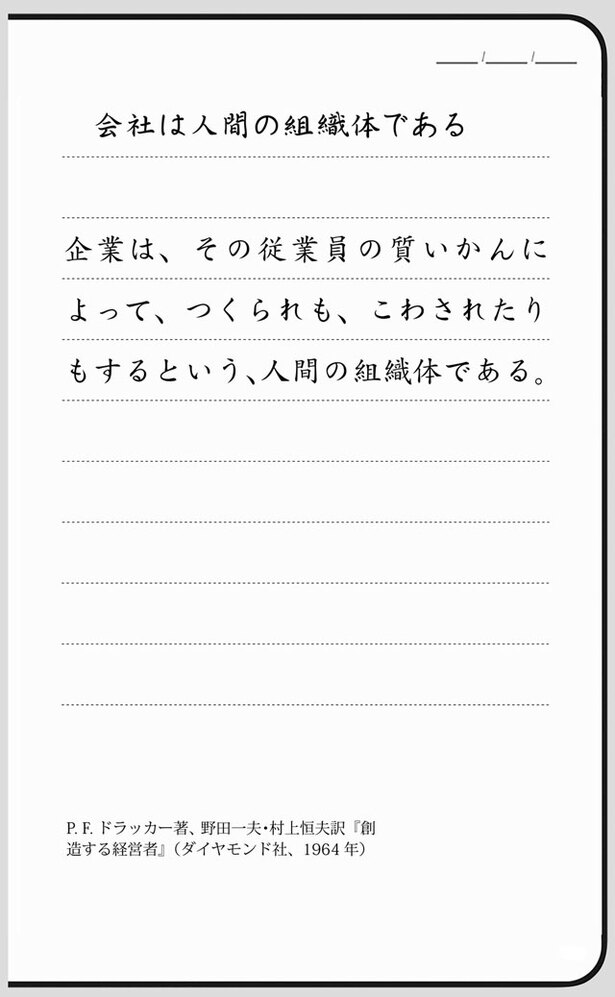 ___/___/___
会社は人間の組織体である
企業は、その従業員の質いかんに
よって、つくられも、こわされたり
もするという、人間の組織体である。
P. F. ドラッカー著、野田一夫・村上恒夫訳『創
造する経営者』（ダイヤモンド社、1964 年）